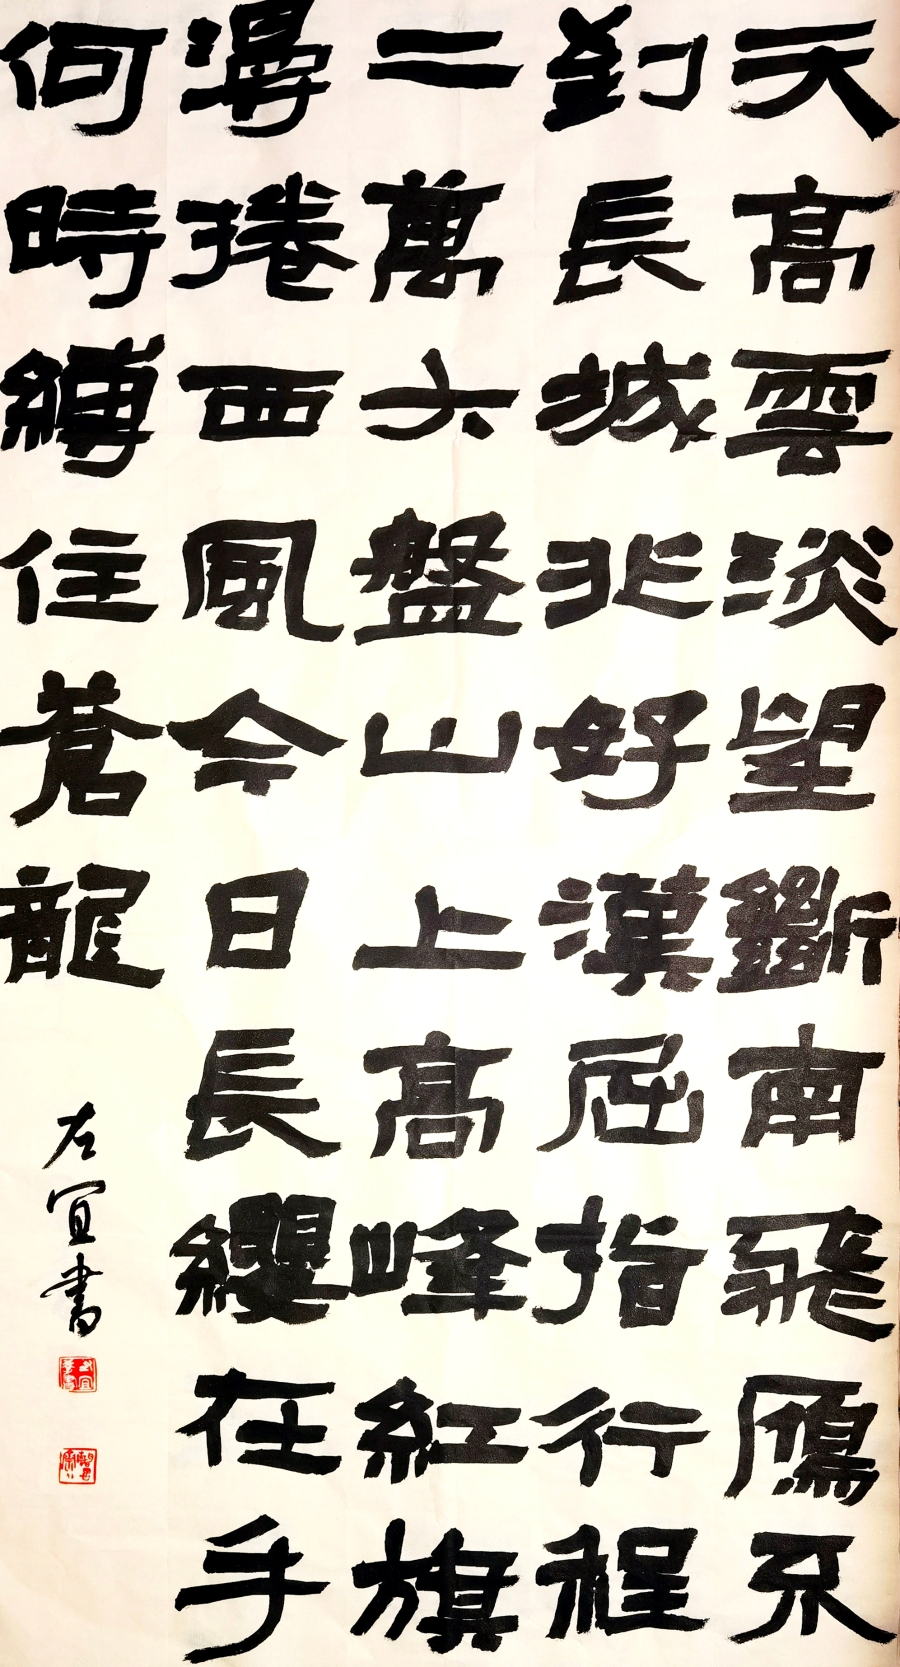 天高雲淡望斷南飛鴈不
到長城非好漢屈指行程
二萬六盤山上高峰紅旗
漫捲西風今日長纓在手
何時縛住蒼龍
左宜書